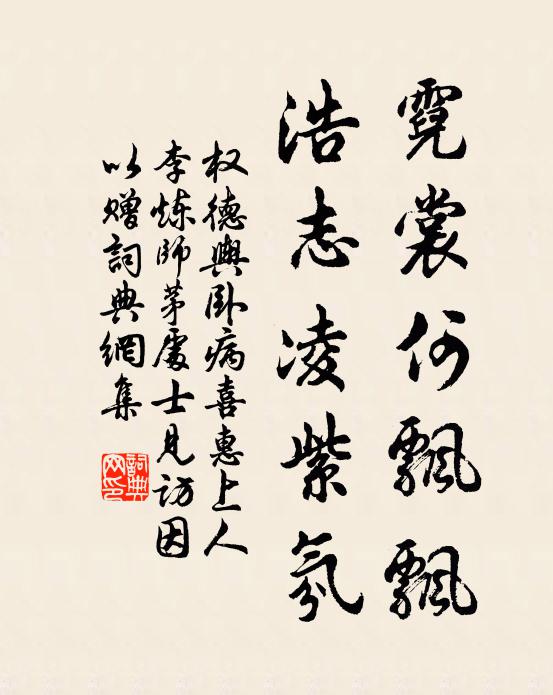 霓裳何飄飄
浩志凌紫氛
权德輿卧病喜惠上人
李炼師茅處士見訪因
以赠詞典網集
詞典
网印